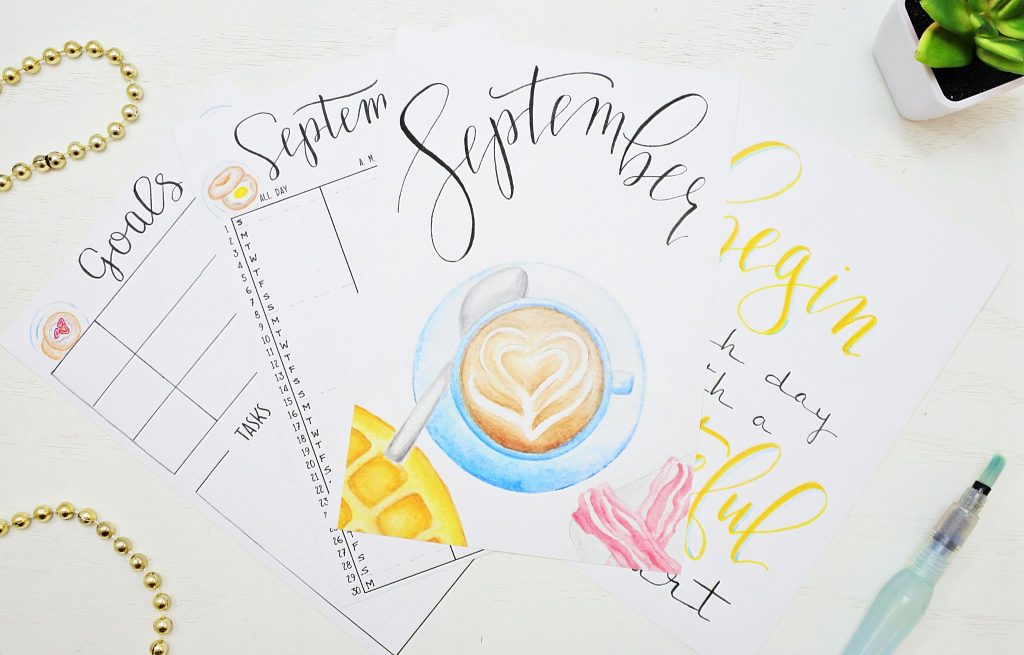 Goals
TASKS
Septem
ALL DAY A. M.
1 S
2 M
3 T
4 W
5 T
6 F
7 S
8 S
9 M
10 T
11 W
12 T
13 F
14 S
15 S
16 M
17 T
18 W
19 T
20 F
21 S
22
23
26 T
27 F
28 S
29 S
30 M
September
begin
h day
th a
ful
art